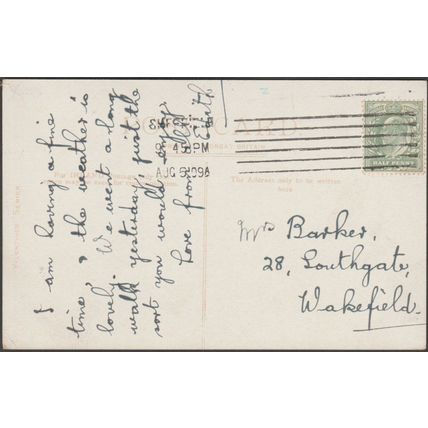 I am having a fine
time, the weather is
lovely. We went a long
walk yesterday, just the
sort you would enjoy
Love from
Edith
POST CARD
SHEFFIELD
8.45 PM
AUG 5 09
The Address only to be written
here
HALF PENNY
Mrs Barker,
28, Southgate,
Wakefield.